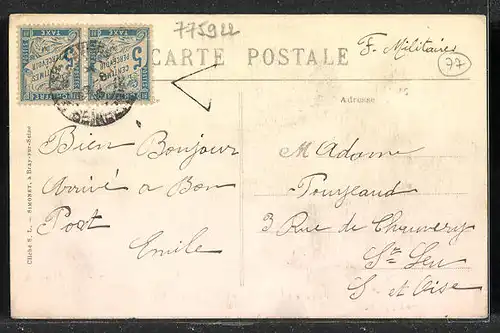 775922
CARTE POSTALE
F. Militaire
77
TAXE
TAXE
5
5
CENTIMES
A
PERCEVOIR
Adresse
Bien Bonjour
Arrivé a Bon
Post
Emile
MAdame
3 Rue de
St Leu
S et Oise
Cliché S. L. — SIMONET, à Bray-sur-Seine